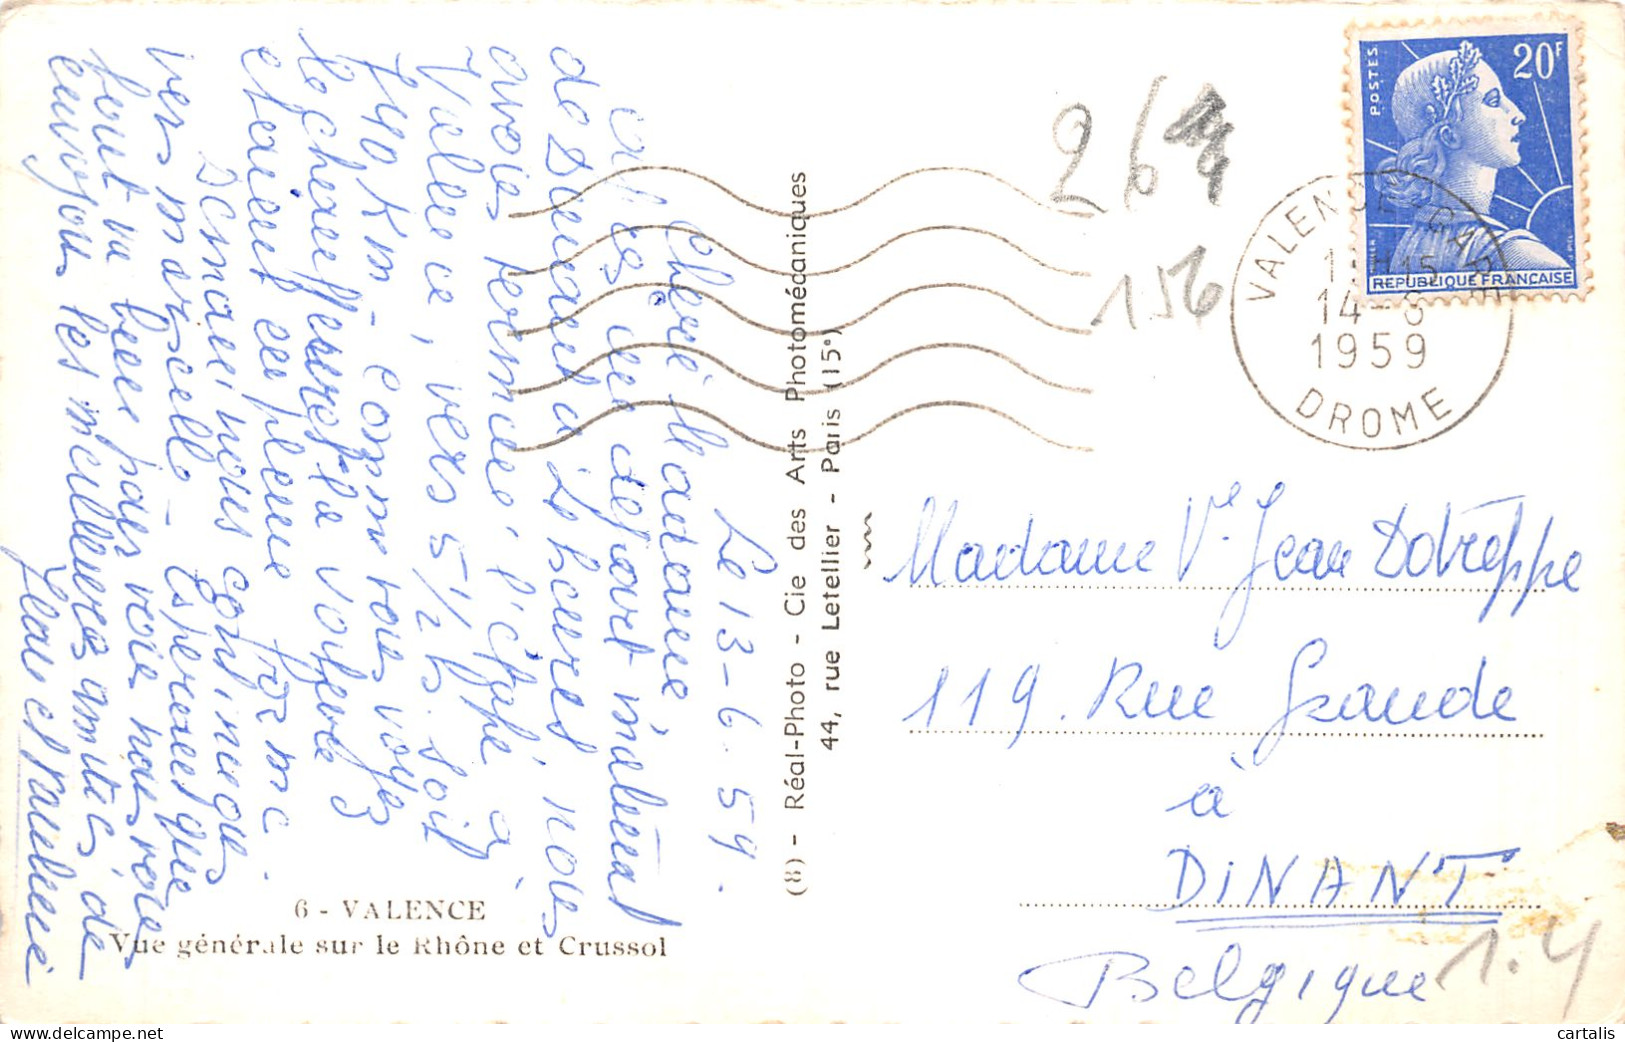 Le 13-6.59.
Chère Madame
après un départ matinal
de Dinant à 4 heures nous
avons terminé l'étape à
Valence, vers 5 1/2 h. soit
740 Km - comme vous voyez
le chauffeur et la voiture
étaient en pleine forme.
Demain nous continuons
vers Marseille - Espérons que
tout ira bien par voie
envoyons les meilleures amitiés de
Jean et Pauline
6 - VALENCE
Vue générale sur le Rhône et Crussol
(8) - Réal-Photo - Cie des Arts Photomécaniques
44, rue Letellier - Paris (15e)
264
156
POSTES
20F
REPUBLIQUE FRANÇAISE
VALENCE-GARE
15
14-6
1959
DROME
Madame Ve Jean Dotreppe
119. Rue Grande
à
DINANT
Belgique
1.4
cartalis